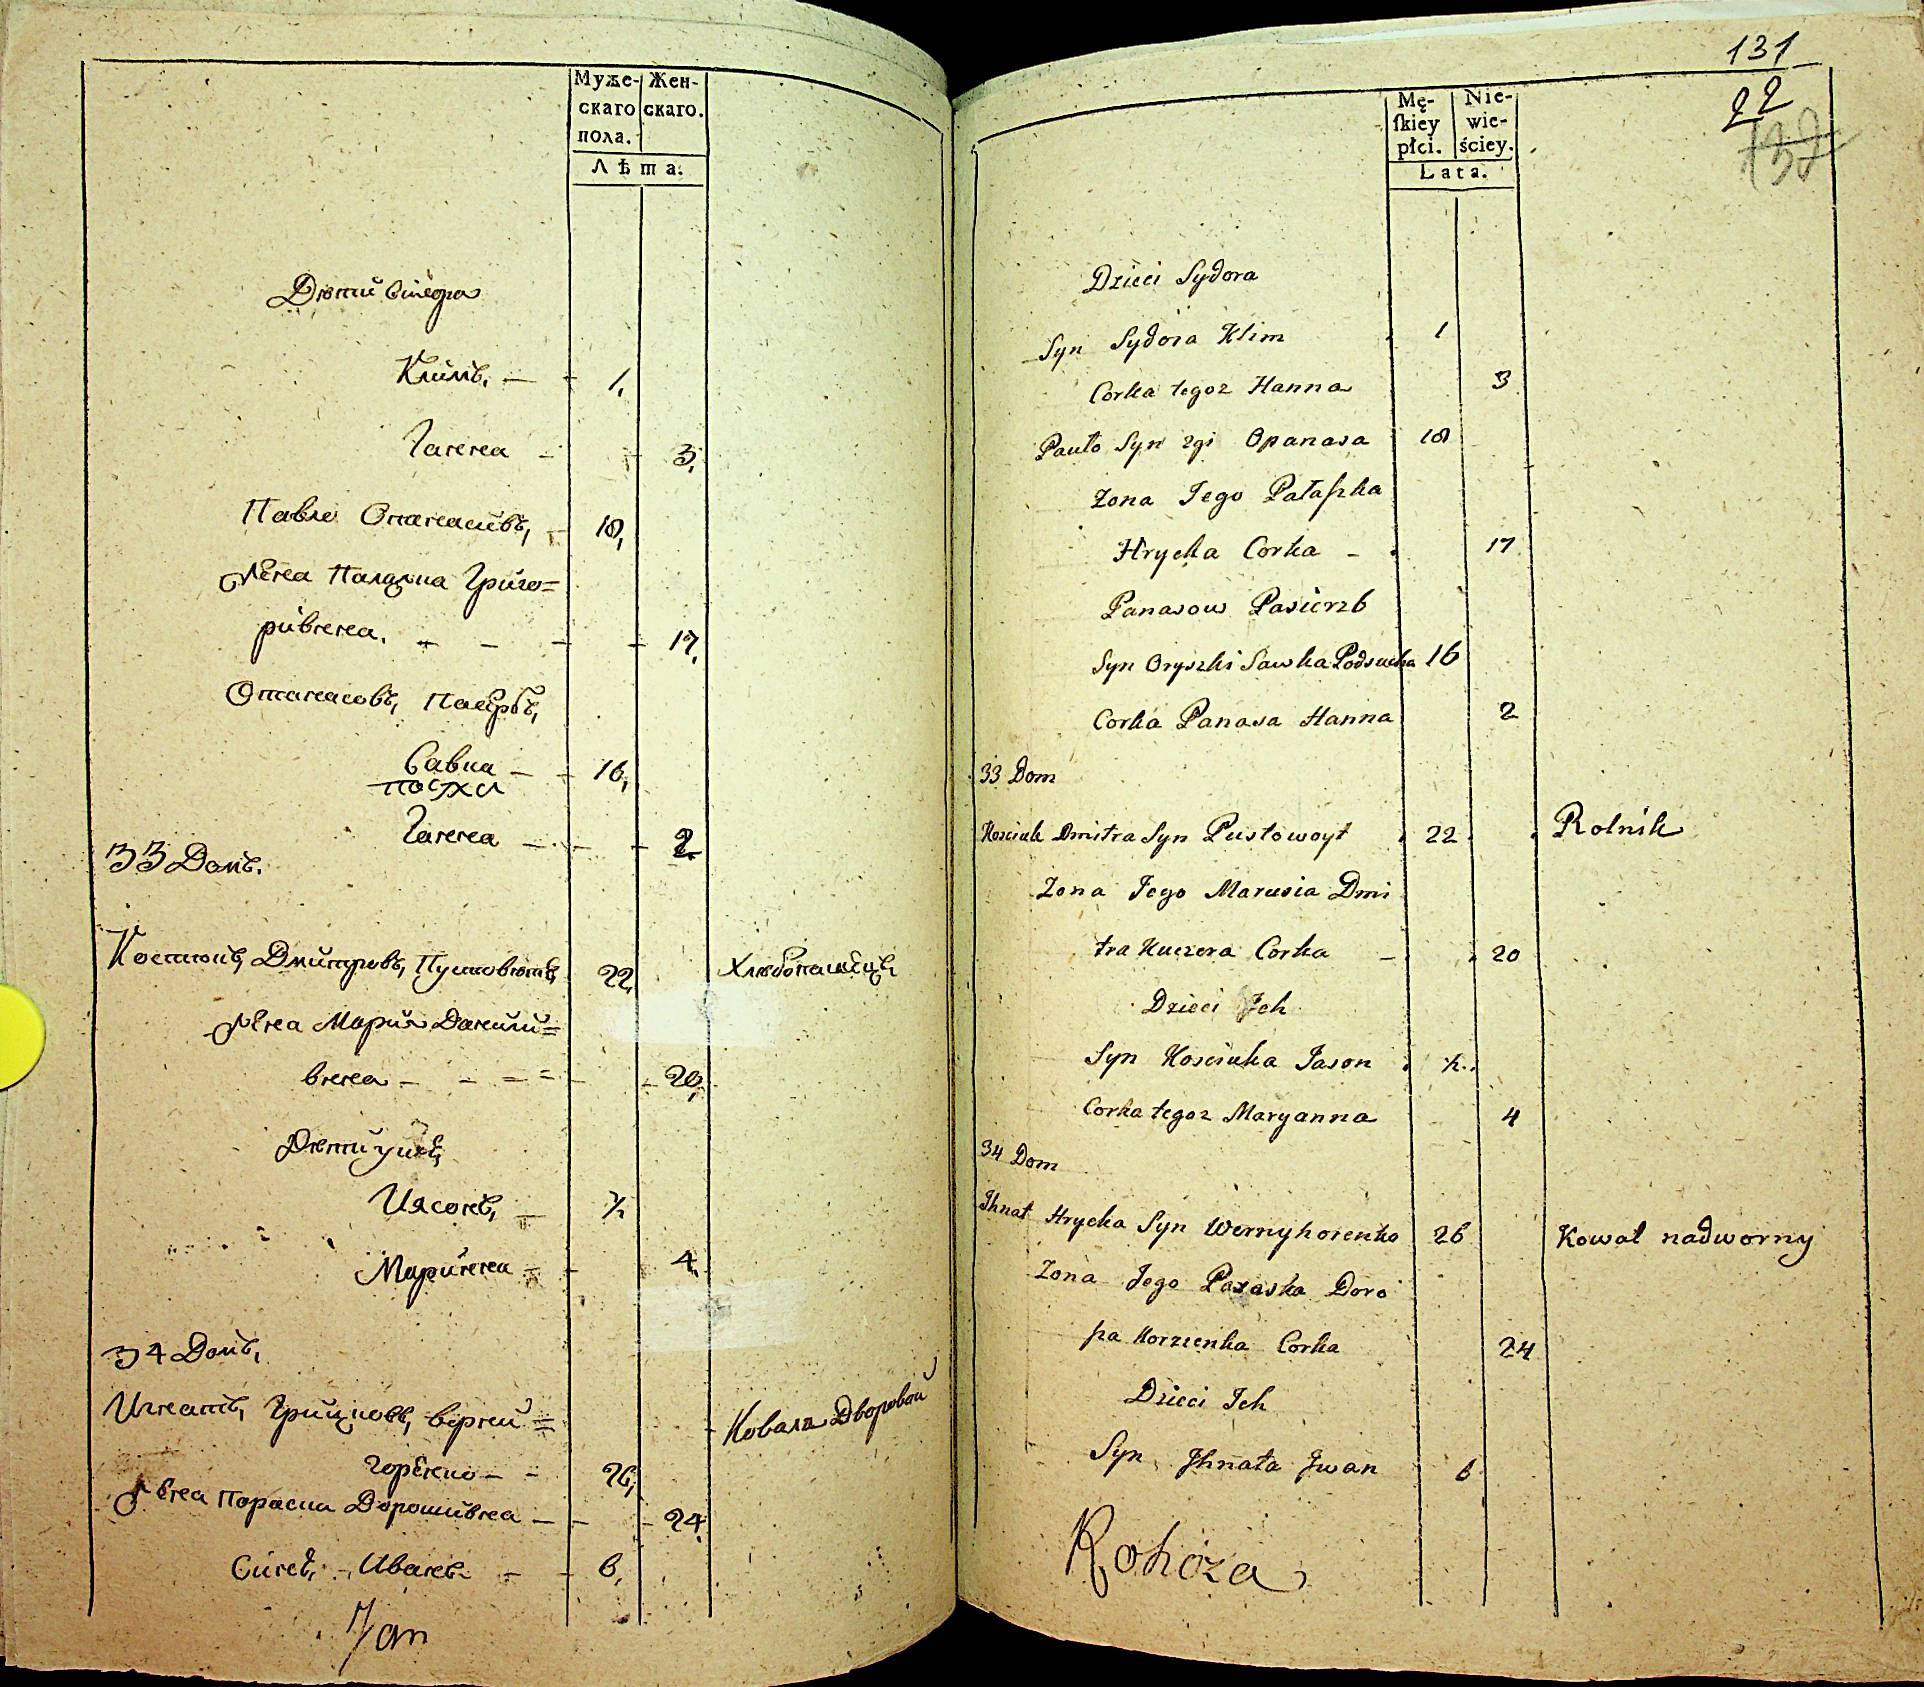 Муже-
скаго
пола.
Жен-
скаго.
Лѣта.
Дѣти
Климъ, 1,
Ганна 3,
Павло Опанасивъ, 18,
Жена Палажка Григо=
ривнна. 17,
Опанасовъ,
Савка 16,
Ганна 2
33 Домъ.
Костюкъ, Дмитровъ, 22, Хлѣбопашецъ
Жена Мария Данили=
внна 20,
Дѣти ихъ,
Иясонъ, ½
Маринна 4,
34 Домъ,
Игнатъ, Грицковъ, верни= Коваль Дворовой
горенко 26,
Жена Параска Дорошивна 24,
Синъ, Иванъ 6,
Jan
131
22
137
Mę-
ſkiey
płci.
Nie-
wie-
ściey.
Lata.
Dzieci Sydora
Syn Sydora Klim 1
Corka tegoz Hanna 3
Pauło Syn Opanasa 18
Zona Jego Pałaszka
Hrycka Corka 17
Panasow Pasierzb
Syn Oryszki Sawka Podsucha 16
Corka Panasa Hanna 2
33 Dom
Kosciuk Dmitra Syn Pustowoyt 22 Rolnik
Zona Jego Marusia Dmi
tra Kuczera Corka 20
Dzieci Ich
Syn Kosciuka Jason ½
Corka tegoz Maryanna 4
34 Dom
Ihnat Hrycka Syn Wernyhorenko 26 Kowal nadworny
Zona Jego Paraska Doro
sza Korzenka Corka 24
Dzieci Ich
Syn Ihnata Iwan 6
Rohoza